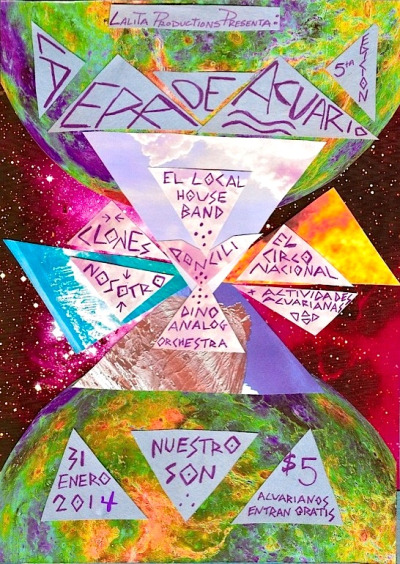 LALITA PRODUCTIONS PRESENTA:
5TH
DE ACUARIO
EL LOCAL
HOUSE
BAND
CLONES
PONCILI
EL
CIRCO
NACIONAL
NOSOTRO
ACTIVIDADES
ACUARIANAS
DINO
ANALOG
ORCHESTRA
31
ENERO
2014
NUESTRO
SON
$5
ACUARIANOS
ENTRAN GRATIS